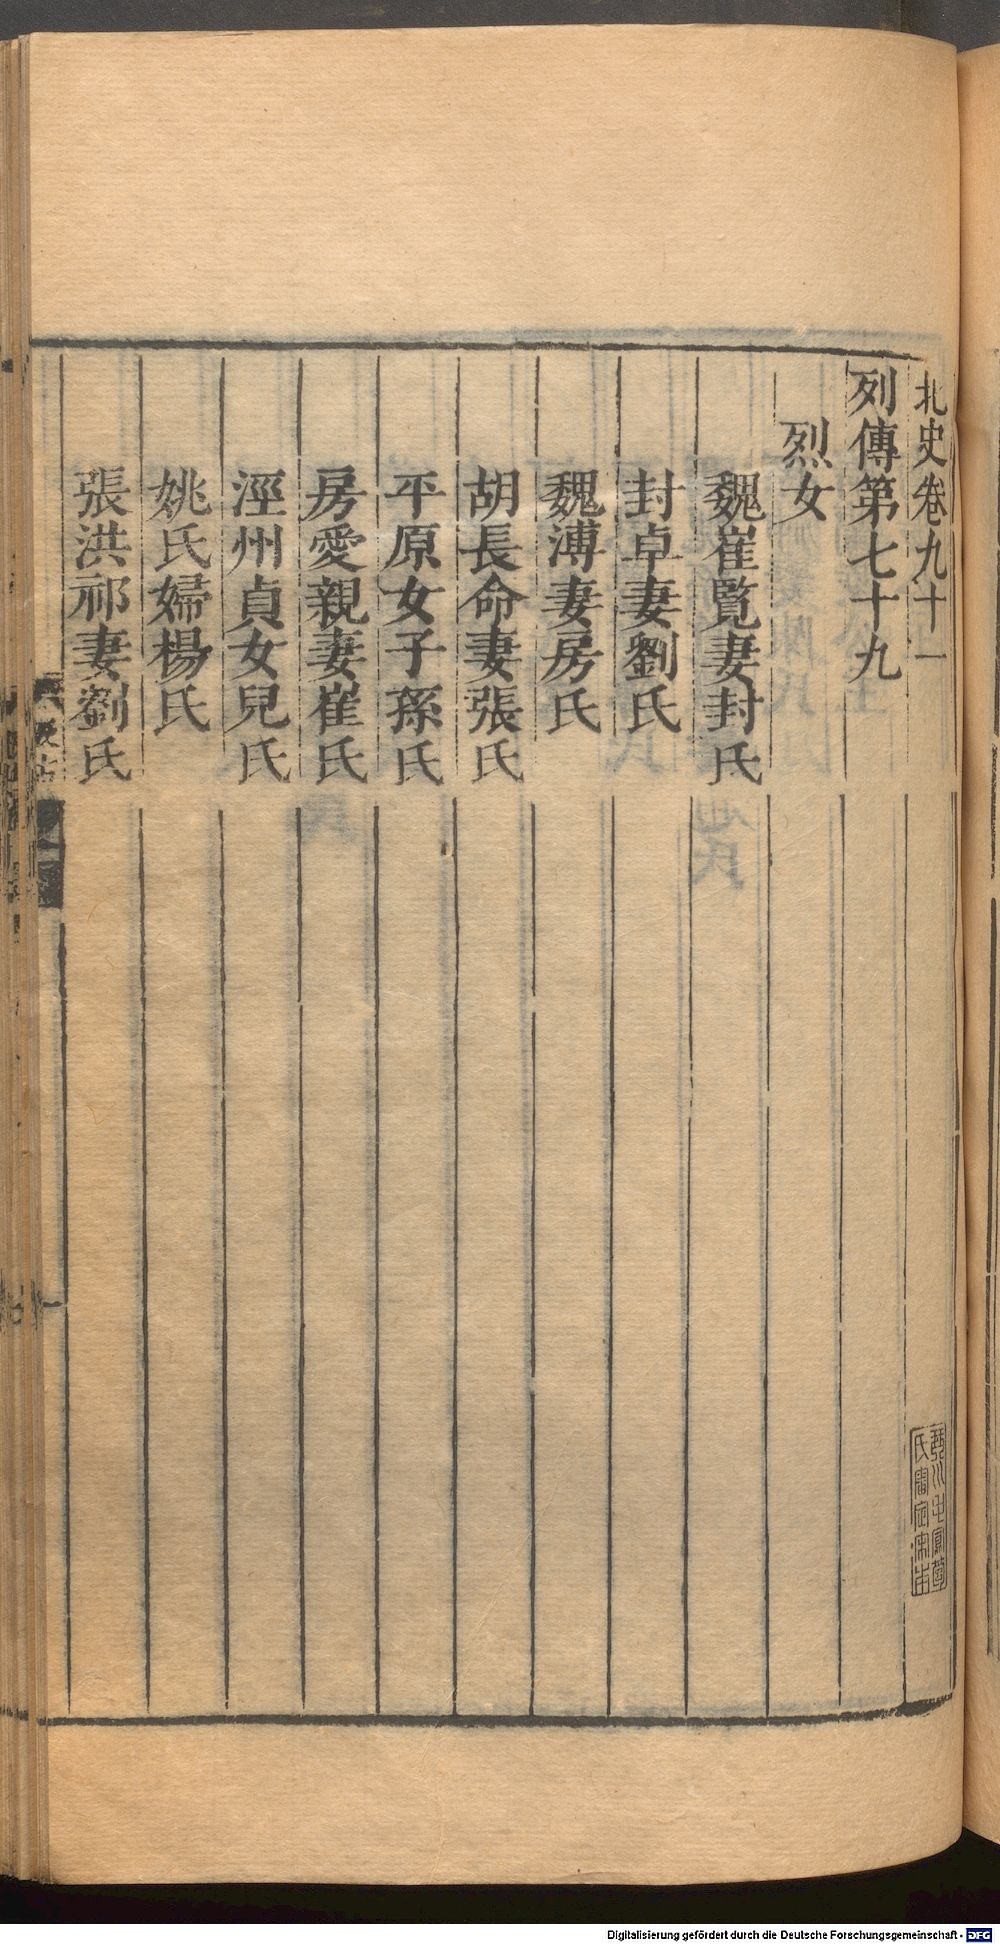 北史卷九十一
列傳第七十九
烈女
魏崔覽妻封氏
封卓妻劉氏
魏溥妻房氏
胡長命妻張氏
平原女子孫氏
房愛親妻崔氏
涇州貞女兒氏
姚氏婦楊氏
張洪祁妻劉氏
Digitalisierung gefördert durch die Deutsche Forschungsgemeinschaft - DFG